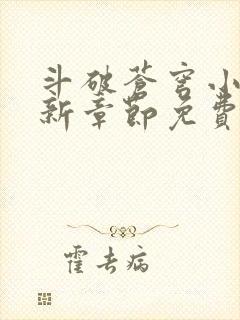 斗破苍穹小
新章節免費
霍去病